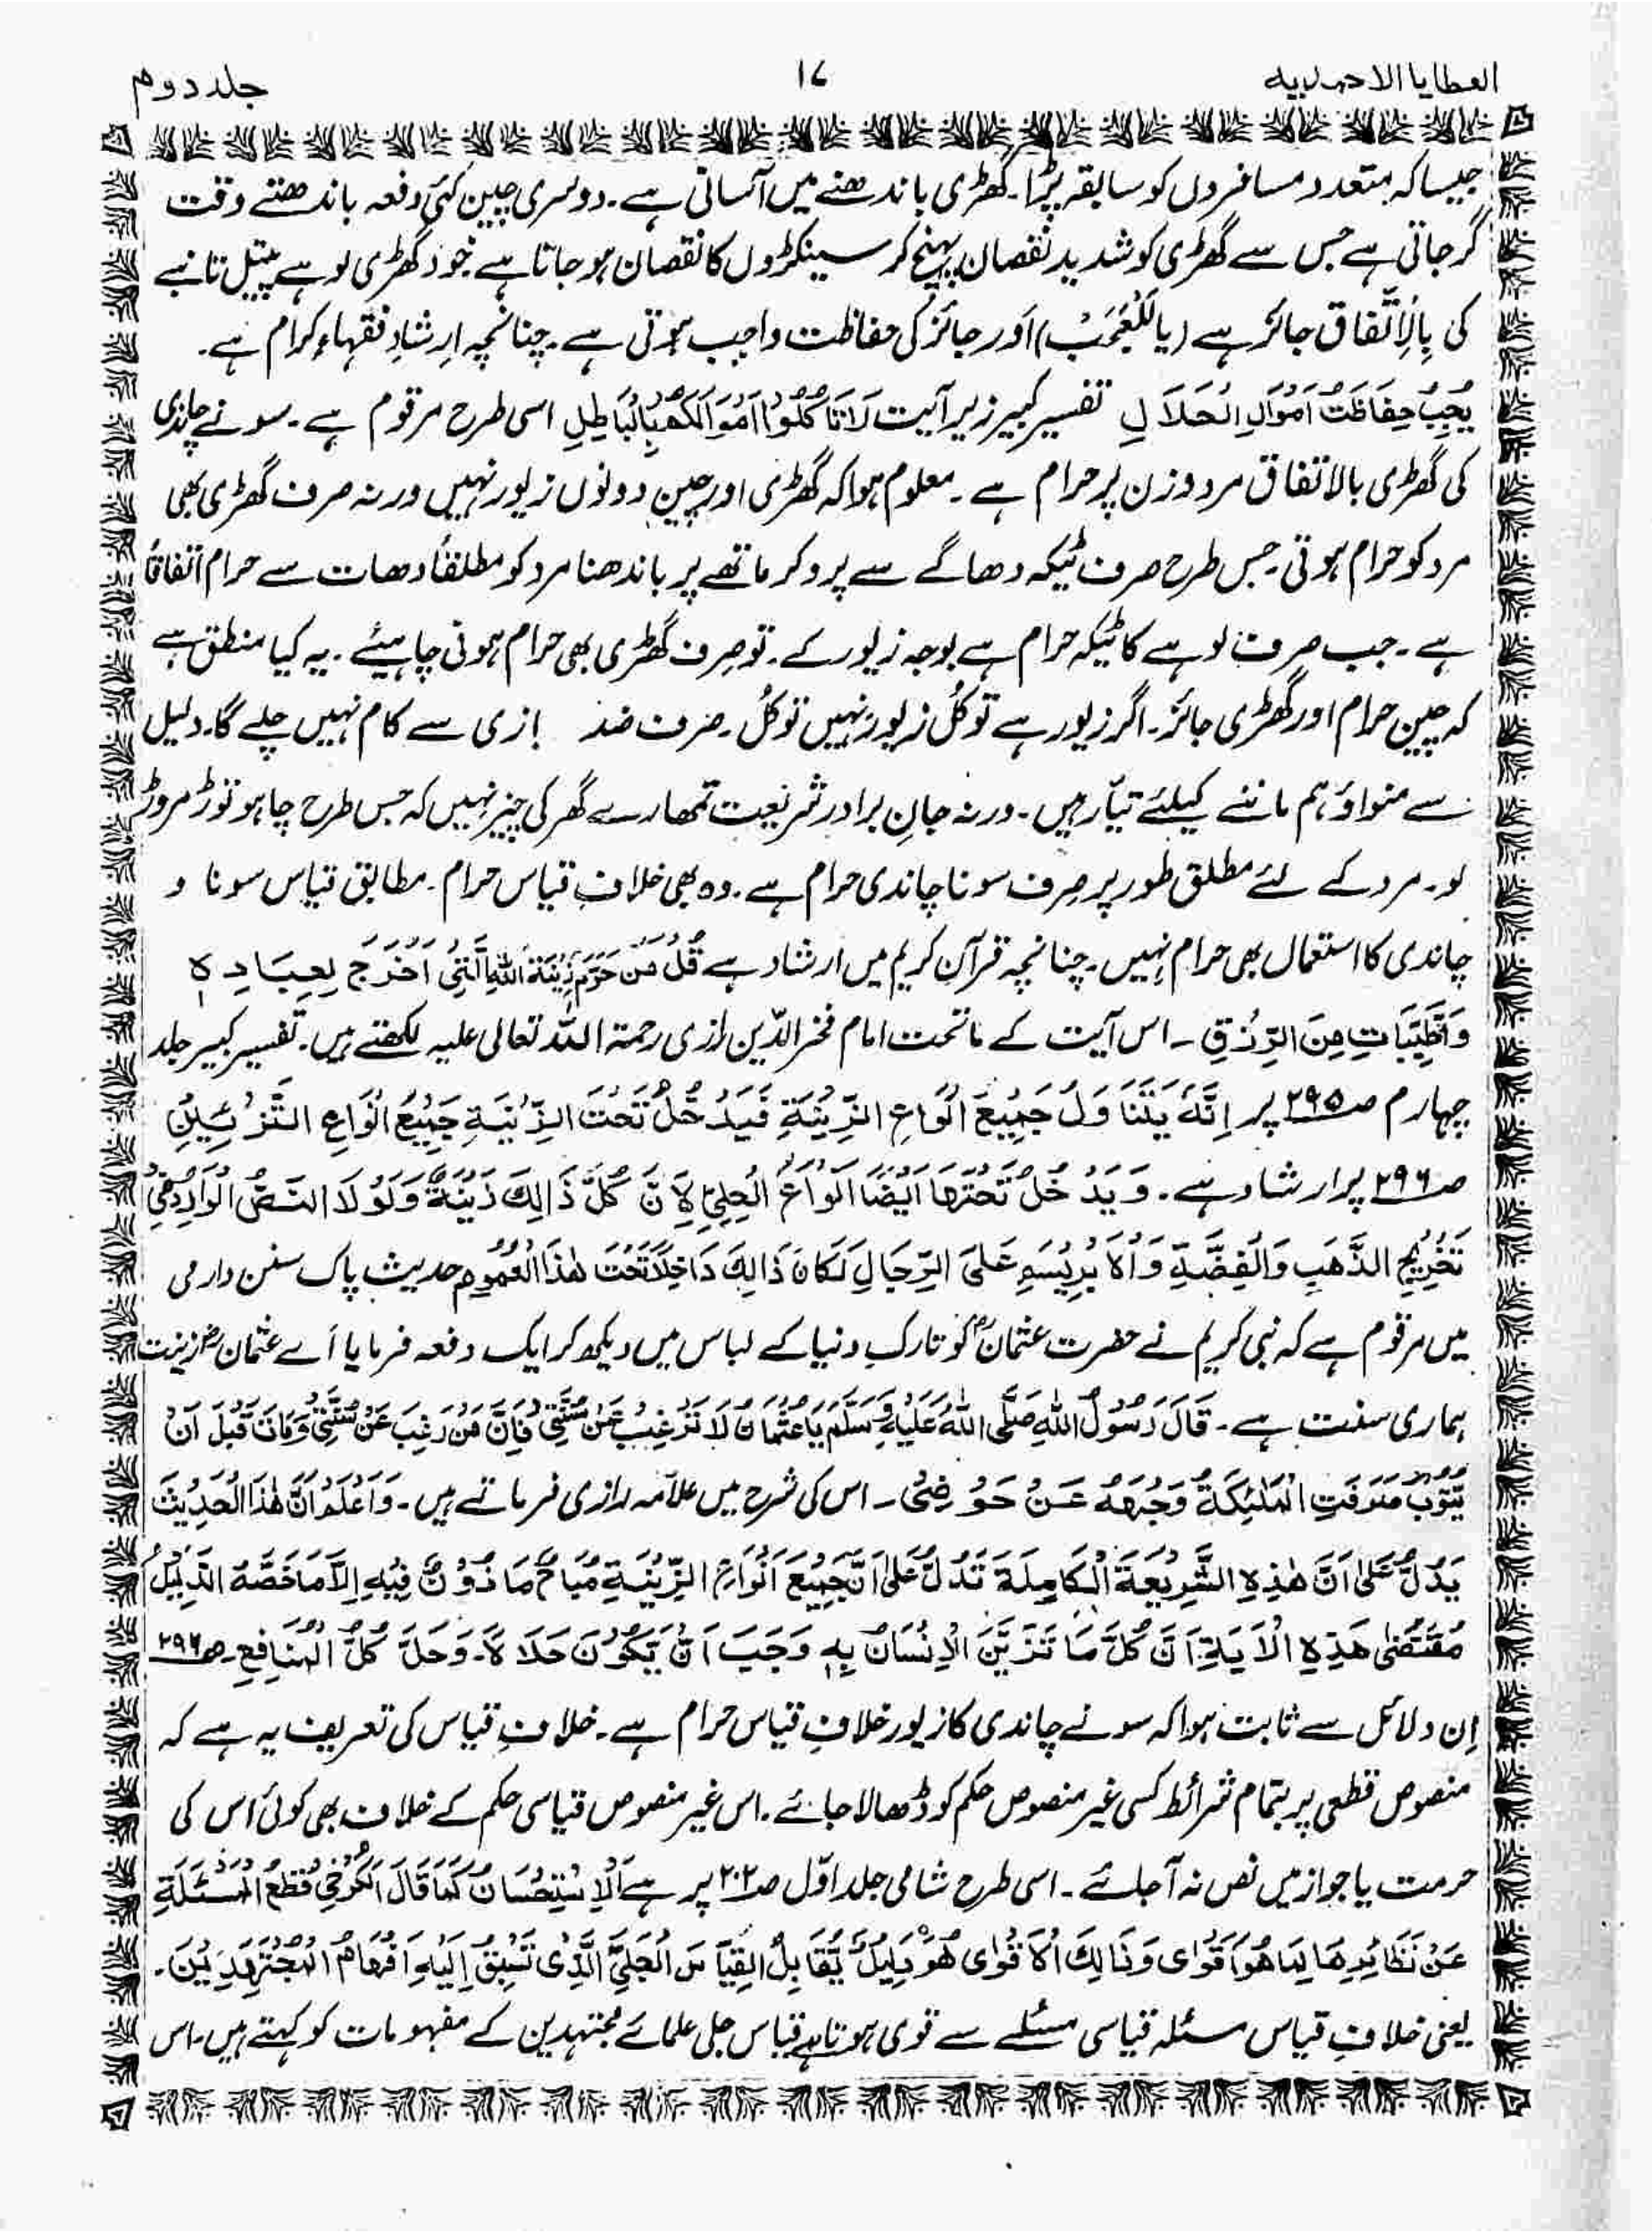 العطایا الاحمدیہ
۱۷
جلد دوم
جیسا کہ متعدد مسافروں کو سابقہ پڑا۔ گھڑی باندھنے میں آسانی ہے۔ دوسری چین کئی دفعہ باندھتے وقت
گر جاتی ہے جس سے گھڑی کو شدید نقصان پہنچ کر سینکڑوں کا نقصان ہو جاتا ہے خود گھڑی لوہے پیتل تانبے
کی بِالاِتّفاق جائز ہے (یاللعُجَب) اور جائز کی حفاظت واجب ہوتی ہے۔ چنانچہ ارشادِ فقہاء کرام ہے۔
یُجِبُ حِفَاظَتُ اَمْوَالِ الْحَلَالِ تفسیر کبیر زیر آیت لَا تَاْکُلُوْا اَمْوَالَکُمْ بِالْبَاطِلِ اسی طرح مرقوم ہے۔ سونے چاندی
کی گھڑی بالاتفاق مرد و زن پر حرام ہے۔ معلوم ہوا کہ گھڑی اور چین دونوں زیور نہیں ورنہ صرف گھڑی بھی
مرد کو حرام ہوتی۔ جس طرح صرف ٹیکہ دھاگے سے پرو کر ماتھے پر باندھنا مرد کو مطلقاً دھات سے حرام اتفاقاً
ہے۔ جب صرف لوہے کا ٹیکہ حرام ہے بوجہ زیور کے۔ تو صِرف گھڑی بھی حرام ہونی چاہیئے۔ یہ کیا منطق ہے
کہ چین حرام اور گھڑی جائز۔ اگر زیور ہے تو کُل زیور نہیں تو کُل۔ صرف ضد بازی سے کام نہیں چلے گا۔ دلیل
سے منواؤ ہم ماننے کیلئے تیّار ہیں۔ ورنہ جانِ برادر شریعت تمھارے گھر کی چیز نہیں کہ جس طرح چاہو توڑ مروڑ
لو۔ مرد کے لئے مطلق طور پر صِرف سونا چاندی حرام ہے۔ وہ بھی خلافِ قیاس حرام۔ مطابق قیاس سونا و
چاندی کا استعمال بھی حرام نہیں۔ چنانچہ قرآن کریم میں ارشاد ہے قُلْ مَنْ حَرَّمَ زِیْنَةَ اللّٰہِ الَّتِیْ اَخْرَجَ لِعِبَادِہٖ
وَالطَّیِّبَاتِ مِنَ الرِّزْقِ ۔ اس آیت کے ماتحت امام فخر الدّین رازی رحمۃ اللہ تعالی علیہ لکھتے ہیں۔ تفسیر کبیر جلد
چہارم صـ۲۹۵ پر اِنَّہٗ یَتَنَاوَلُ جَمِیْعَ اَنْوَاعِ الزِّیْنَةِ فَیَدْخُلُ تَحْتَ الزِّیْنَةِ جَمِیْعُ اَنْوَاعِ التَّزْئِیْنِ
صـ۲۹۶ پر ارشاد ہے۔ وَیَدْخُلُ تَحْتَہَا اَیْضًا اَنْوَاعُ الْحِلِیِّ لِاَنَّ کُلَّ ذَالِکَ زِیْنَةٌ وَلَوْلَا النَّصُّ الْوَارِدُ فِیْ
تَحْرِیْمِ الذَّهَبِ وَالْفِضَّةِ وَالْاَبْرِیْسَمِ عَلَی الرِّجَالِ لَکَانَ ذَالِکَ دَاخِلًا تَحْتَ هٰذَا الْعُمُوْمِ حدیث پاک سنن دارمی
میں مرقوم ہے کہ نبی کریم نے حضرت عثمانؓ کو تارکِ دنیا کے لباس میں دیکھ کر ایک دفعہ فرمایا اَے عثمانؓ زینت
ہماری سنت ہے۔ قَالَ رَسُوْلُ اللّٰہِ صَلَّی اللّٰہُ عَلَیْہِ وَسَلَّمَ یَا عُثْمَانُ لَا تَرْغِبْ عَنْ سُنَّتِیْ فَاِنَّ مَنْ رَغِبَ عَنْ سُنَّتِیْ وَمَاتَ قَبْلَ اَنْ
یَّتُوْبَ صَرَفَتِ الْمَلٰئِکَةُ وَجْہَهٗ عَنْ حَوْضِیْ ۔ اس کی شرح میں علامہ رازی فرماتے ہیں۔ وَاعْلَمْ اَنَّ هٰذَا الْحَدِیْثَ
یَدُلُّ عَلٰی اَنَّ هٰذِہِ الشَّرِیْعَةَ الْکَامِلَةَ تَدُلُّ عَلٰی اَنَّ جَمِیْعَ اَنْوَاعِ الزِّیْنَةِ مُبَاحٌ مَاذُوْنٌ فِیْہِ اِلَّا مَا خَصَّهُ الدَّلِیْلُ
مُقْتَضٰی هٰذِہِ الْاٰیَةِ اَنَّ کُلَّ مَا تَزَیَّنَ الْاِنْسَانُ بِہٖ وَجَبَ اَنْ یَّکُوْنَ حَلَالًا۔ وَحَلَّ کُلُّ الْمَنَافِعِ۔ صـ۲۹۶
اِن دلائل سے ثابت ہوا کہ سونے چاندی کا زیور خلافِ قیاس حرام ہے۔ خلافِ قیاس کی تعریف یہ ہے کہ
منصوص قطعی پر بتمام شرائط کسی غیر منصوص حکم کو ڈھالا جائے۔ اس غیر منصوص قیاسی حکم کے خلاف بھی کوئی اس کی
حرمت یا جواز میں نص نہ آ جائے۔ اسی طرح شامی جلد اوّل صـ۲۰۲ پر ہے اَلْاِسْتِحْسَانُ کَمَا قَالَ الْکَرْخِیْ قَطْعُ الْمَسْئَلَةِ
عَنْ نَظَائِرِهَا لِمَا هُوَ اَقْوٰی وَذَالِکَ الْاَقْوٰی هُوَ دَلِیْلٌ یُّقَابِلُ الْقِیَاسَ الْجَلِیَّ الَّذِیْ تَسْبِقُ اِلَیْہِ اَفْهَامُ الْمُجْتَهِدِیْنَ۔
یعنی خلافِ قیاس مسئلہ قیاسی مسئلے سے قوی ہوتا ہے قیاس جلی علمائے مجتہدین کے مفہومات کو کہتے ہیں۔ اس